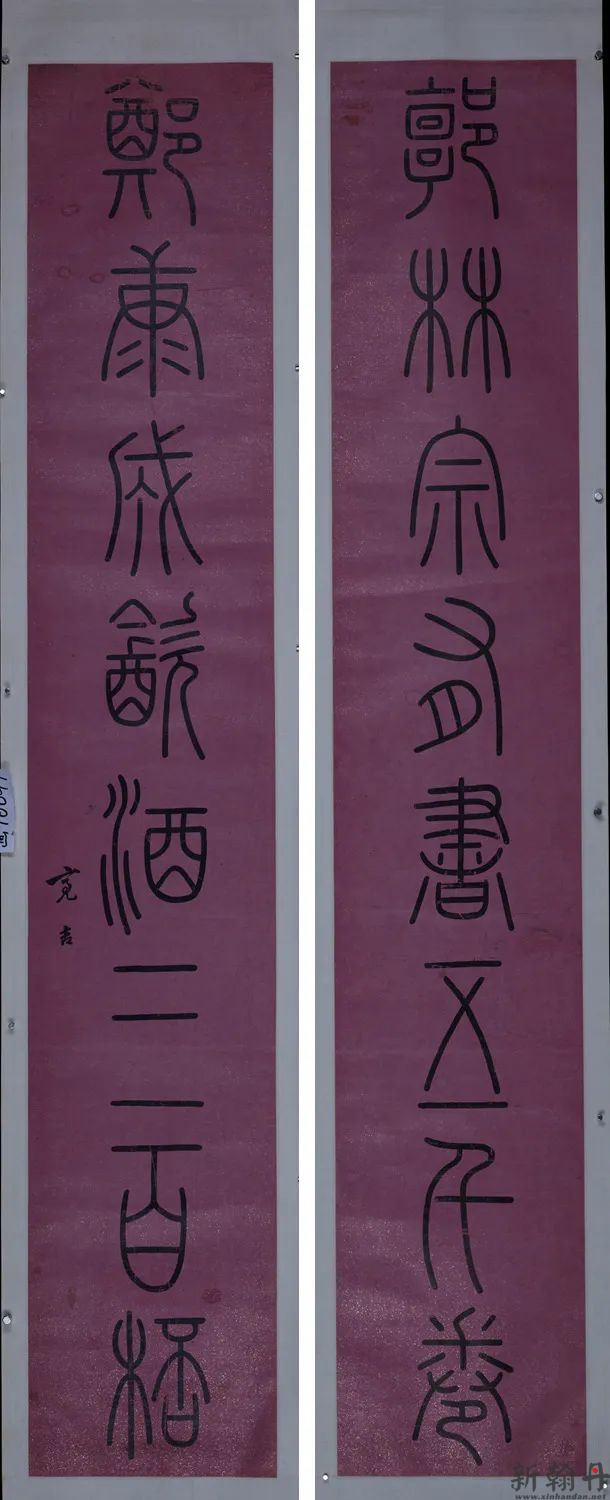 郭林宗有書五千卷
鄭康成飲酒三百桮
亮吉
新翰丹
www.xinhandan.net